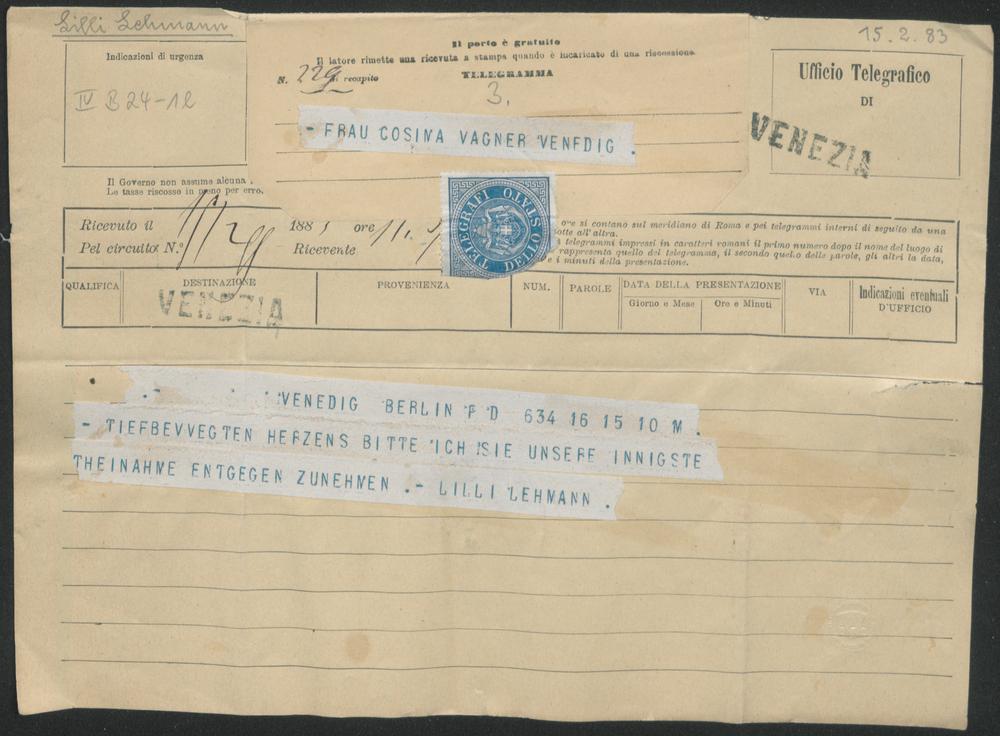 Lilli Lehmann
15. 2. 83
Indicazioni di urgenza
IV B 24-12
Il porto è gratuito
Il latore rimette una ricevuta a stampa quando è incaricato di una riscossione.
N. 229 di recapito
TELEGRAMMA
3.
- FRAU COSIMA VAGNER VENEDIG .
Ufficio Telegrafico
DI
VENEZIA
Il Governo non assume alcuna
Le tasse riscosse in meno per erro.
TELEGRAFI DELLO STATO
Ricevuto il 188 ore
Pel circuito N.° Ricevente
ore si contano sul meridiano di Roma e pei telegrammi interni di seguito da una
notte all'altra.
i telegrammi impressi in caratteri romani il primo numero dopo il nome del luogo di
rappresenta quello del telegramma, il secondo quello delle parole, gli altri la data,
e i minuti della presentazione.
QUALIFICA DESTINAZIONE PROVENIENZA NUM. PAROLE DATA DELLA PRESENTAZIONE VIA Indicazioni eventuali
Giorno e Mese Ore e Minuti D'UFFICIO
VENEZIA
VENEDIG BERLIN F D 634 16 15 10 M .
- TIEFBEVVEGTEN HERZENS BITTE ICH SIE UNSERE INNIGSTE
THEINAHME ENTGEGEN ZUNEHMEN .- LILLI LEHMANN .